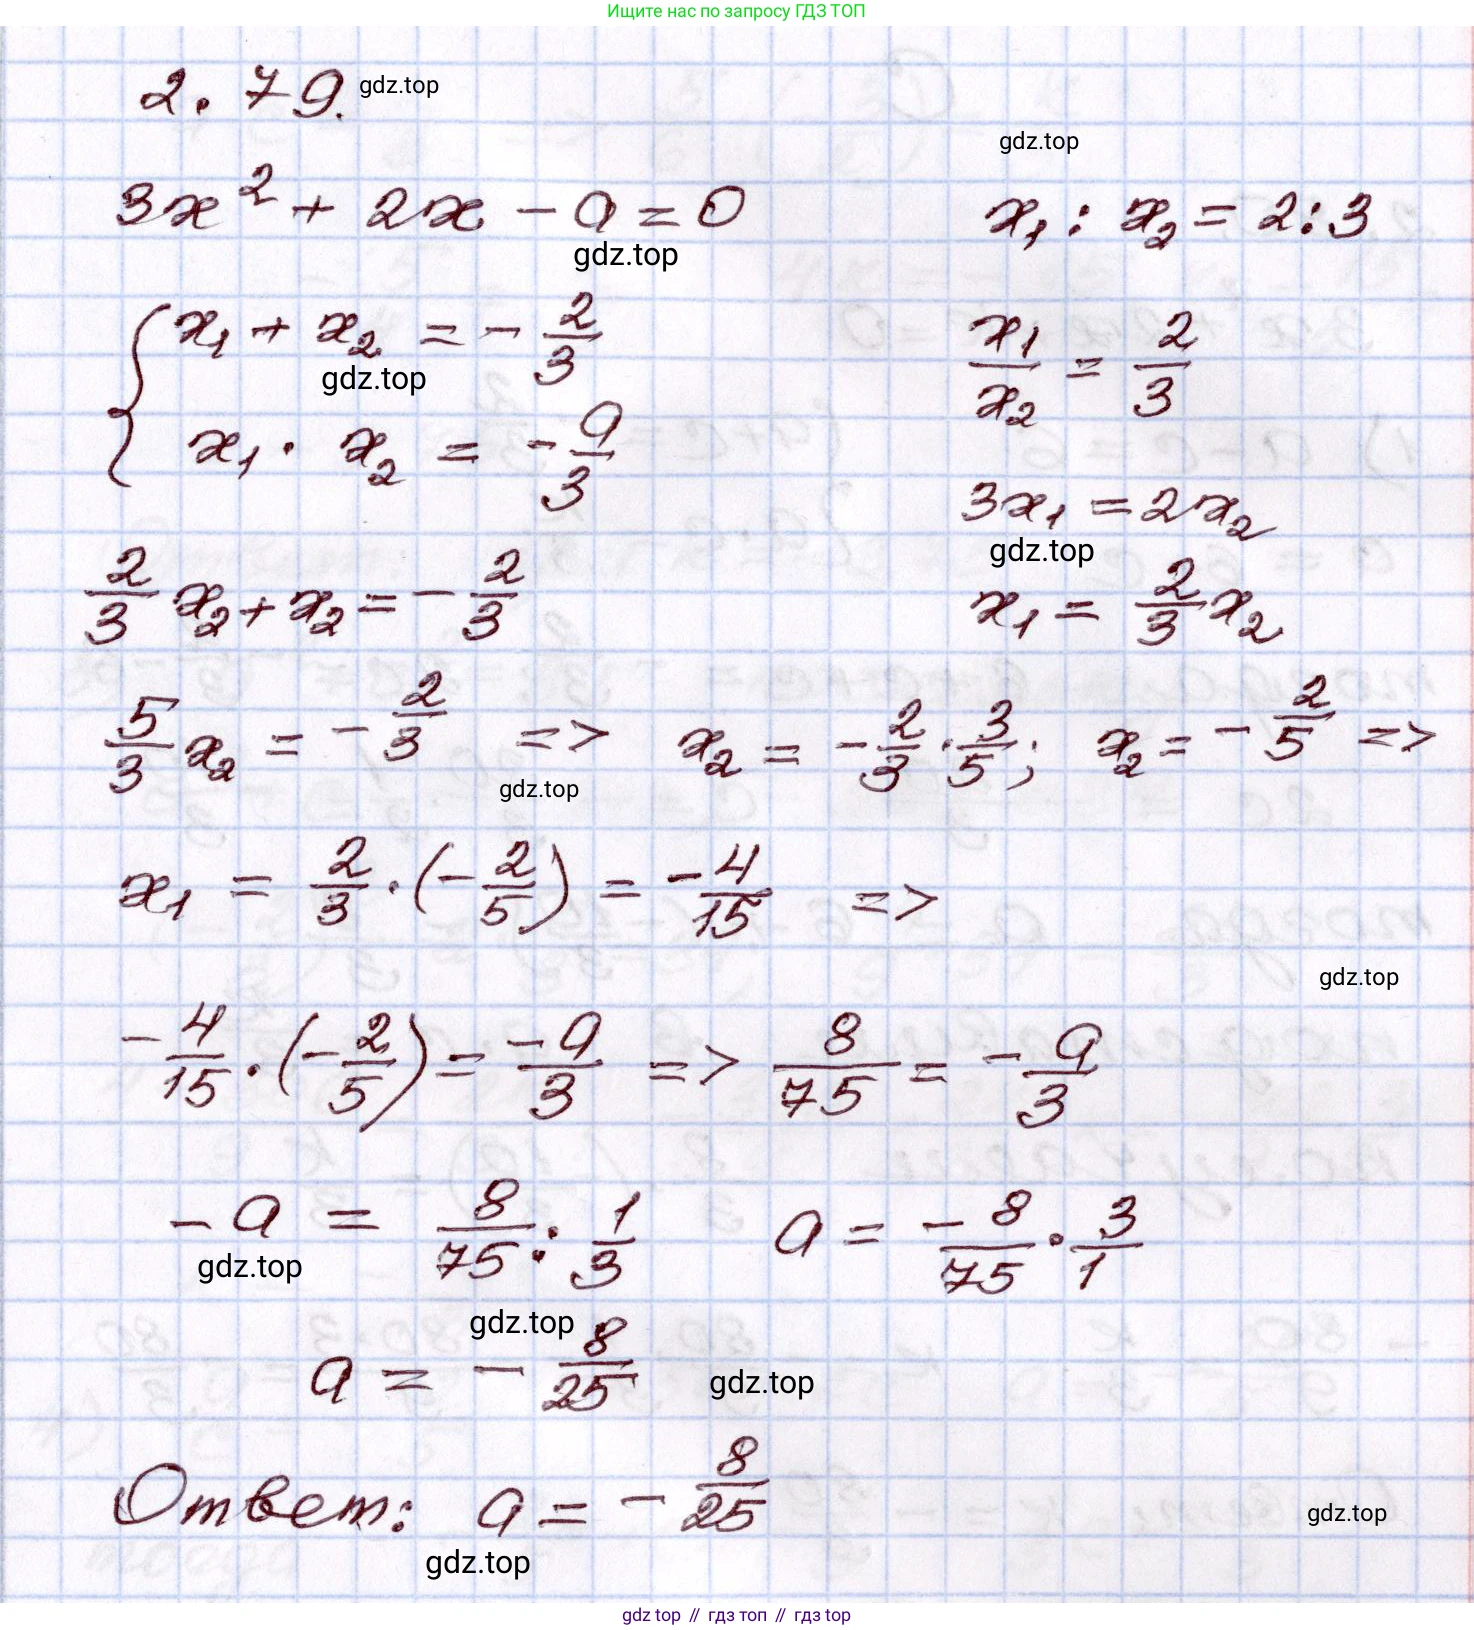 Ищите нас по запросу ГДЗ ТОП
2.79. gdz.top
gdz.top
3x² + 2x - a = 0    x₁ : x₂ = 2:3
gdz.top
{ x₁ + x₂ = - 2/3    x₁/x₂ = 2/3
gdz.top
x₁ · x₂ = - a/3
3x₁ = 2x₂
gdz.top
2/3 x₂ + x₂ = - 2/3    x₁ = 2/3 x₂
5/3 x₂ = - 2/3 => x₂ = - 2/3 · 3/5; x₂ = - 2/5 =>
gdz.top
x₁ = 2/3 · (- 2/5) = -4/15 =>
gdz.top
- 4/15 · (- 2/5) = -a/3 => 8/75 = - a/3
- a = 8/75 : 1/3    a = -8/75 · 3/1
gdz.top
gdz.top
a = - 8/25
gdz.top
Ответ: a = - 8/25
gdz.top
gdz.top
gdz top // гдз топ // гдз top